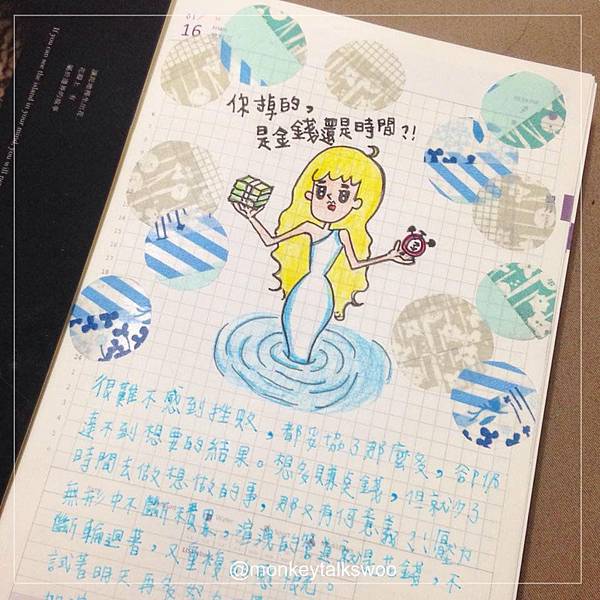 16
你掉的，
是金錢還是時間?!
很難不感到挫敗，都妥協了那麼多，卻仍
達不到想要的結果。想多賺點錢，但就少了
時間去做想做的事，那又有何意義??壓力
無形中不斷積累，宣洩的管道卻
斷輪迴著，又重複
試著明天再多努
@monkeytalkswoo
If you can see the island in your mind, you will